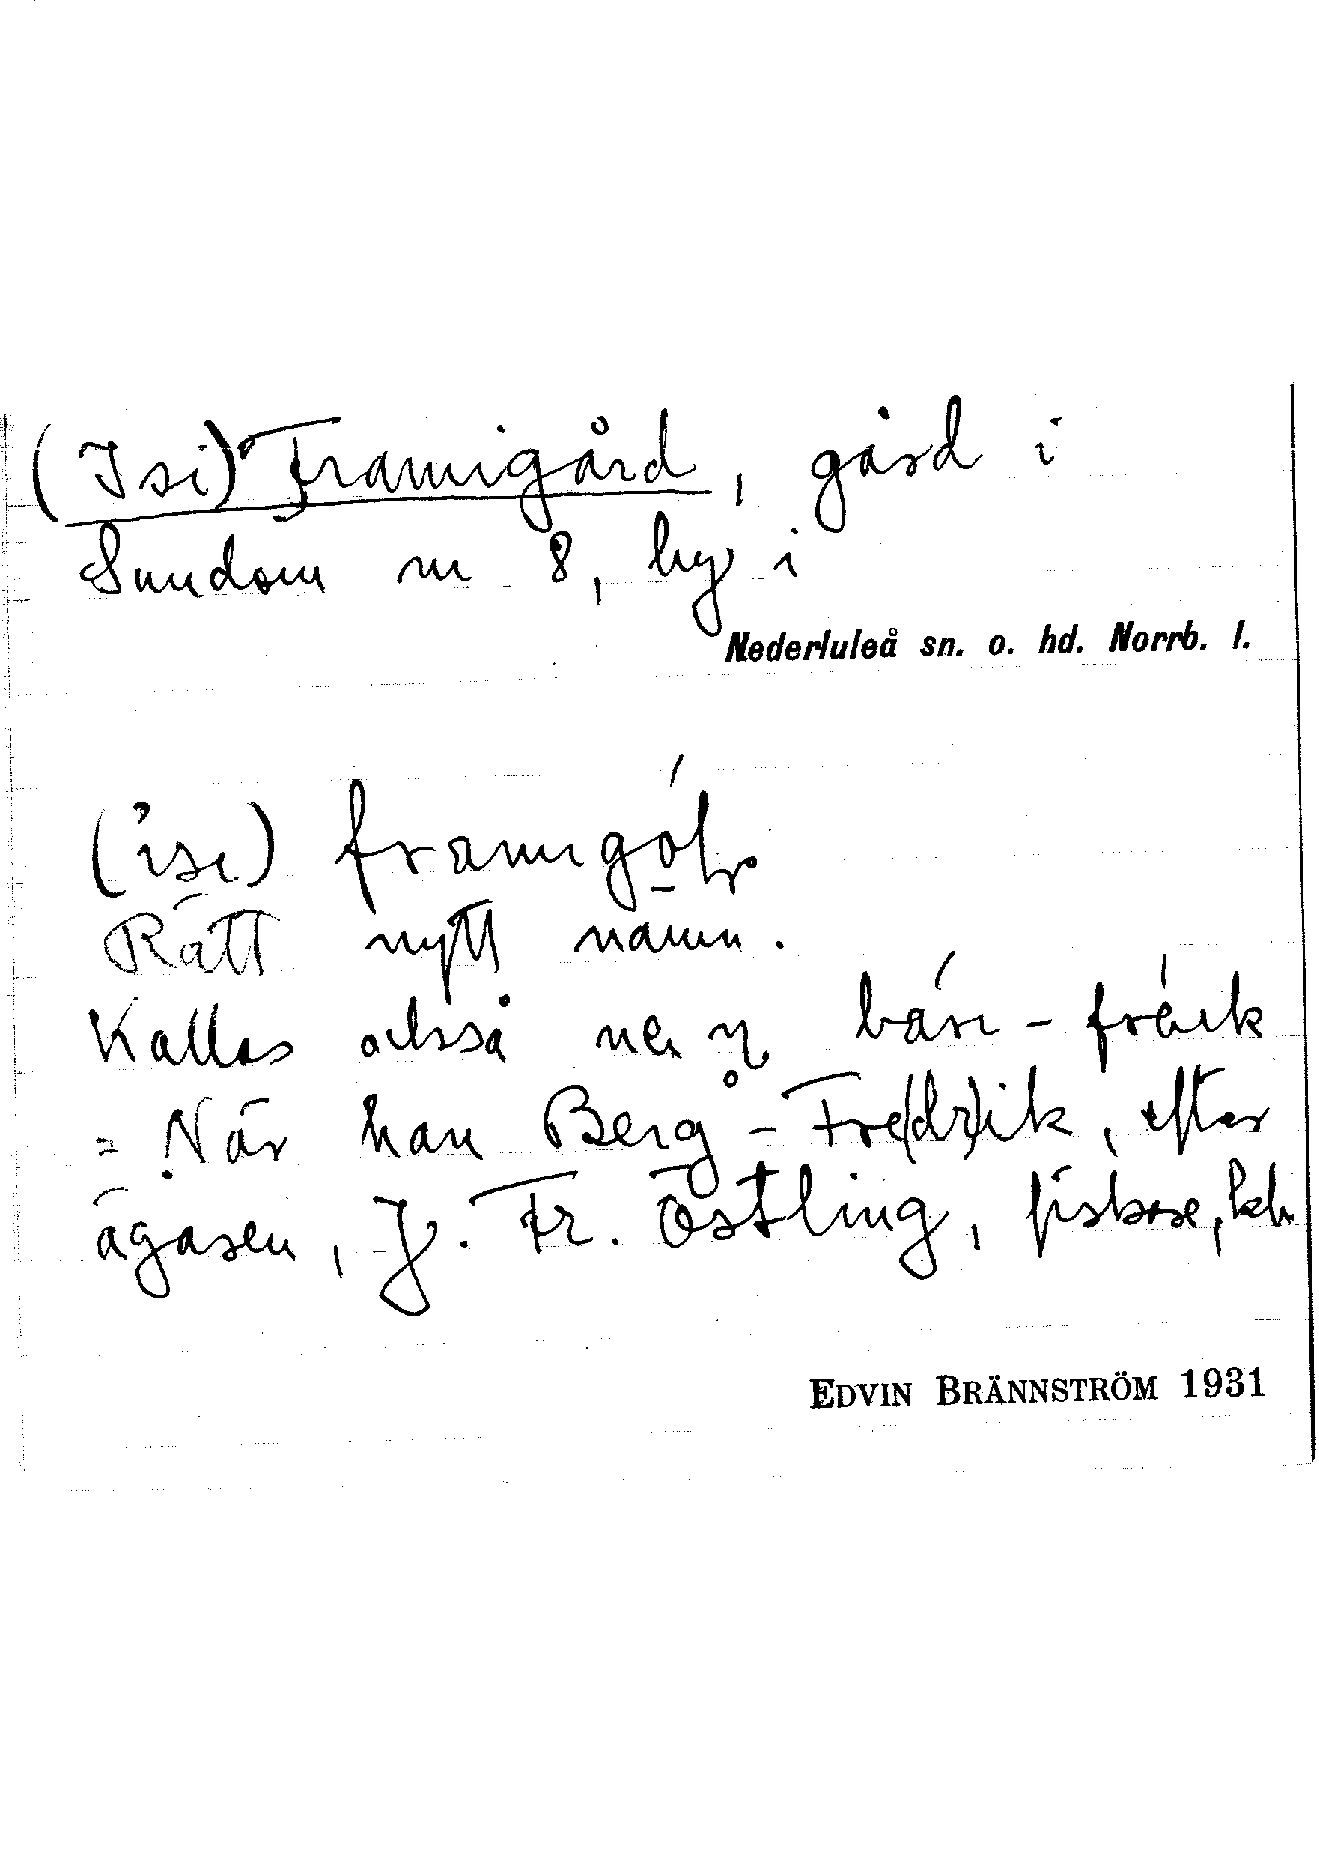 (Isi) Framigård, gård i
Sundom nr 8, by i
Nederluleå sn. o. hd. Norrb. l.
(ise) framigå
Rätt nytt namn.
Kallas också
= När han Berg-Fre(dr)ik, efter
ägaren, J. Fr. Östling, fiskare,
EDVIN BRÄNNSTRÖM 1931